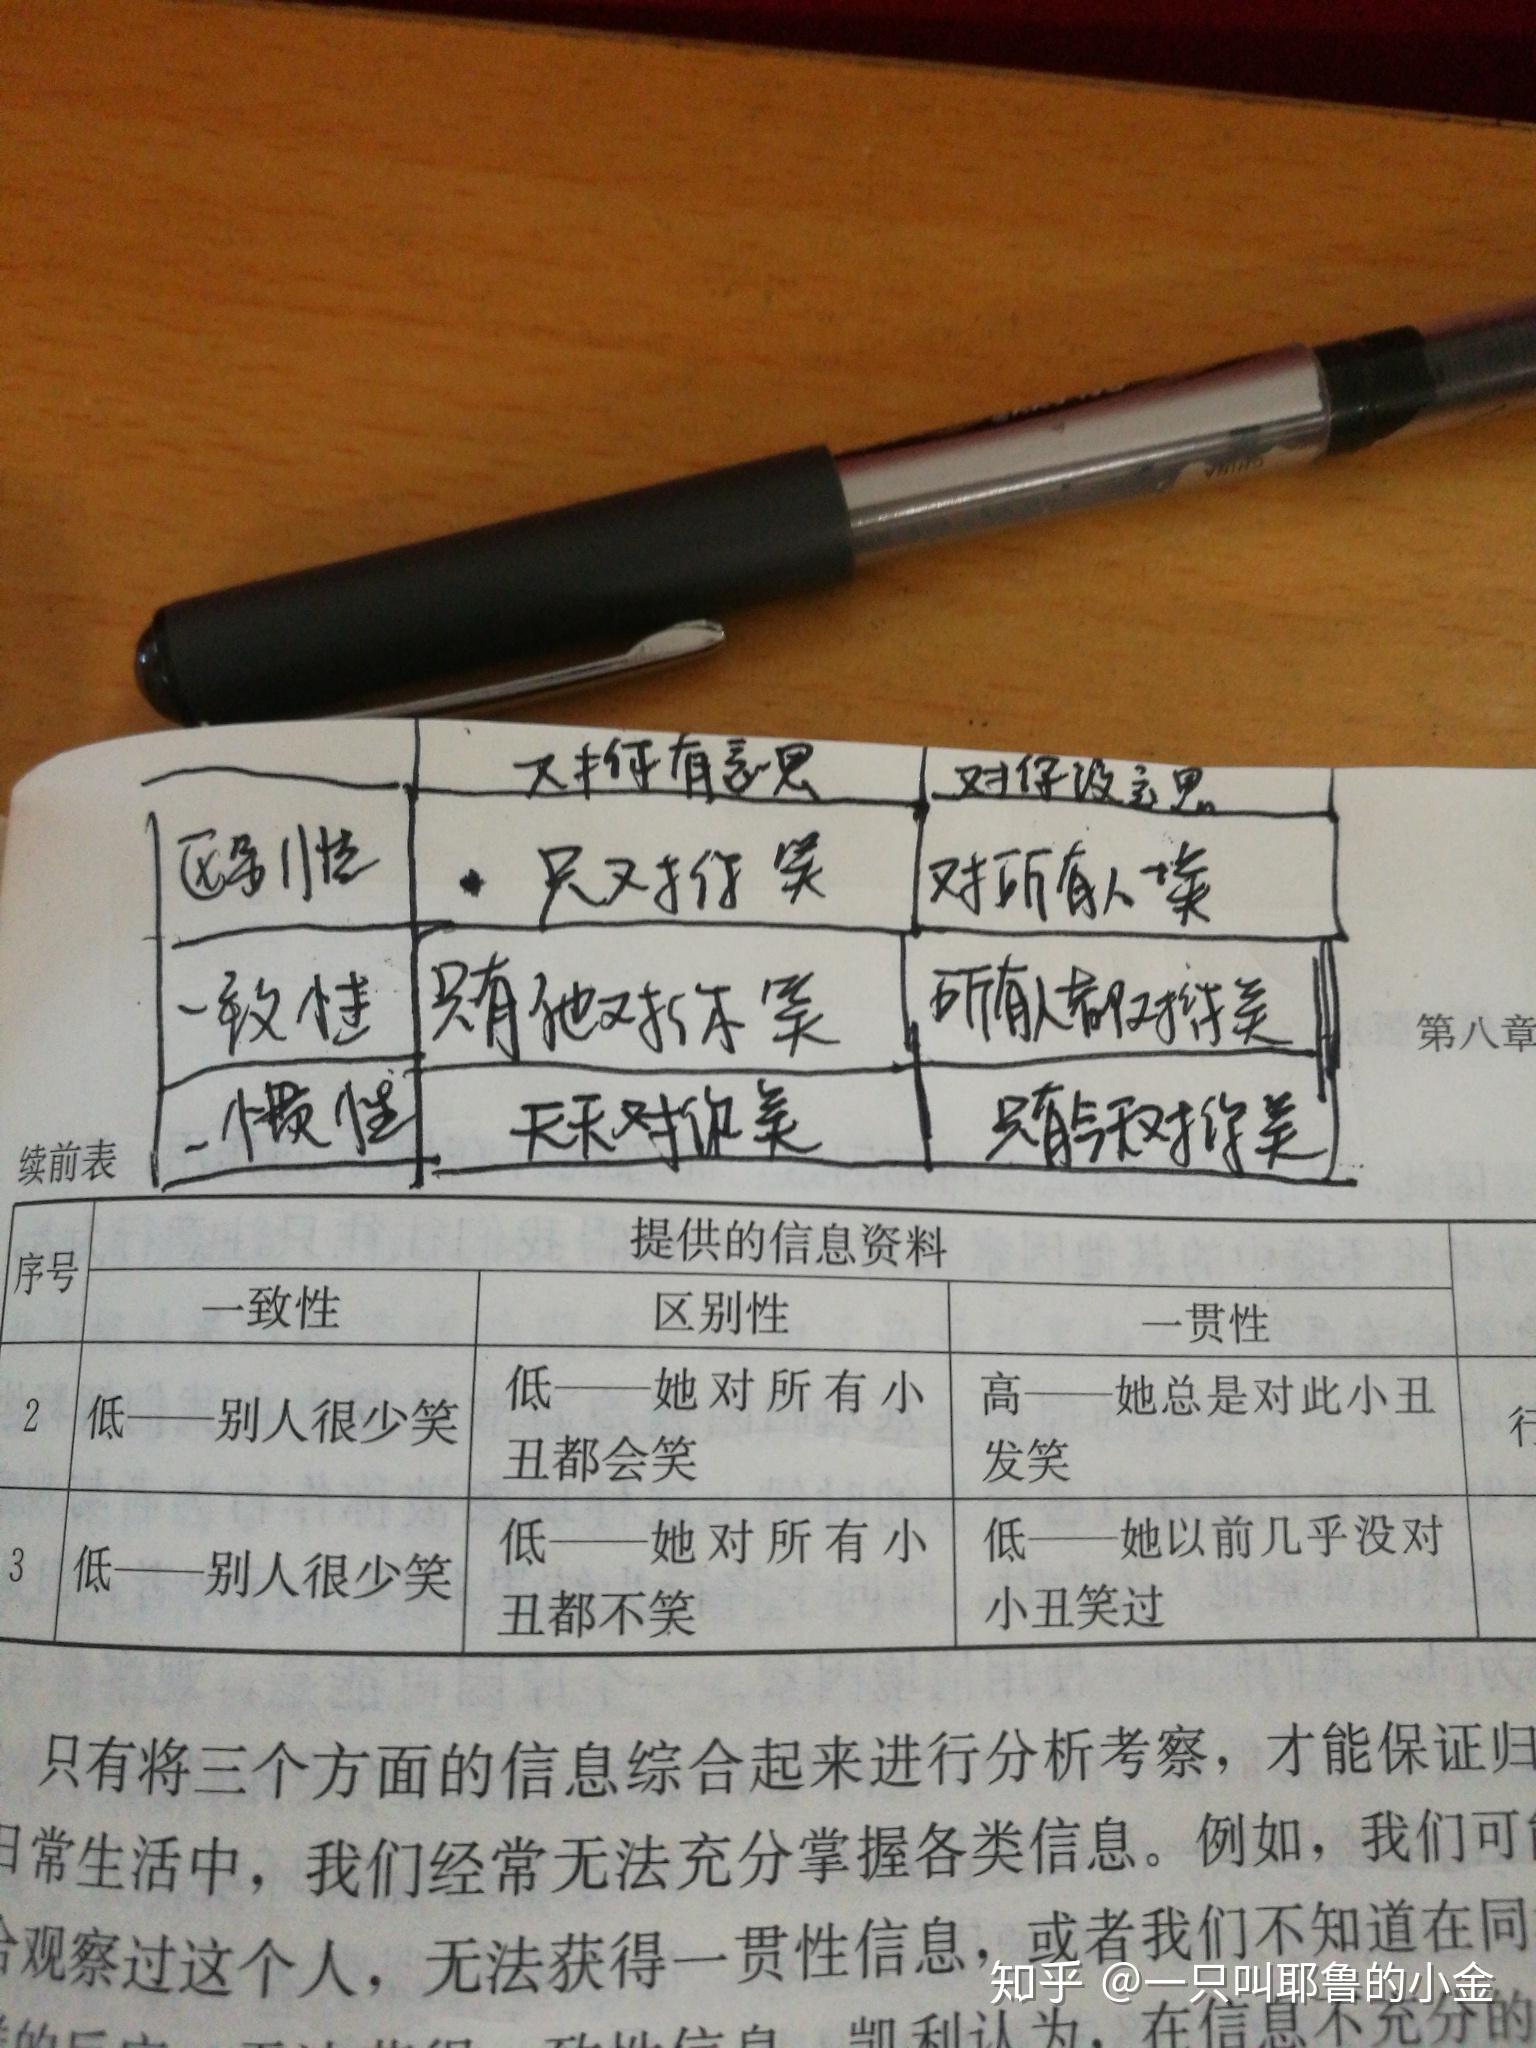 CHINA
对你有意思 对你没意思
区别性 只对你笑 对所有人笑
一致性 只有他对你笑 所有人都对你笑
一惯性 天天对你笑 只有今天对你笑
第八章
续前表
序号 提供的信息资料
一致性 区别性 一贯性
2 低——别人很少笑 低——她对所有小 高——她总是对此小丑
丑都会笑 发笑
3 低——别人很少笑 低——她对所有小 低——她以前几乎没对
丑都不笑 小丑笑过
只有将三个方面的信息综合起来进行分析考察，才能保证归
日常生活中，我们经常无法充分掌握各类信息。例如，我们可能
观察过这个人，无法获得一贯性信息，或者我们不知道在同
知乎 @一只叫耶鲁的小金
致性信息。凯利认为，在信息不充分的